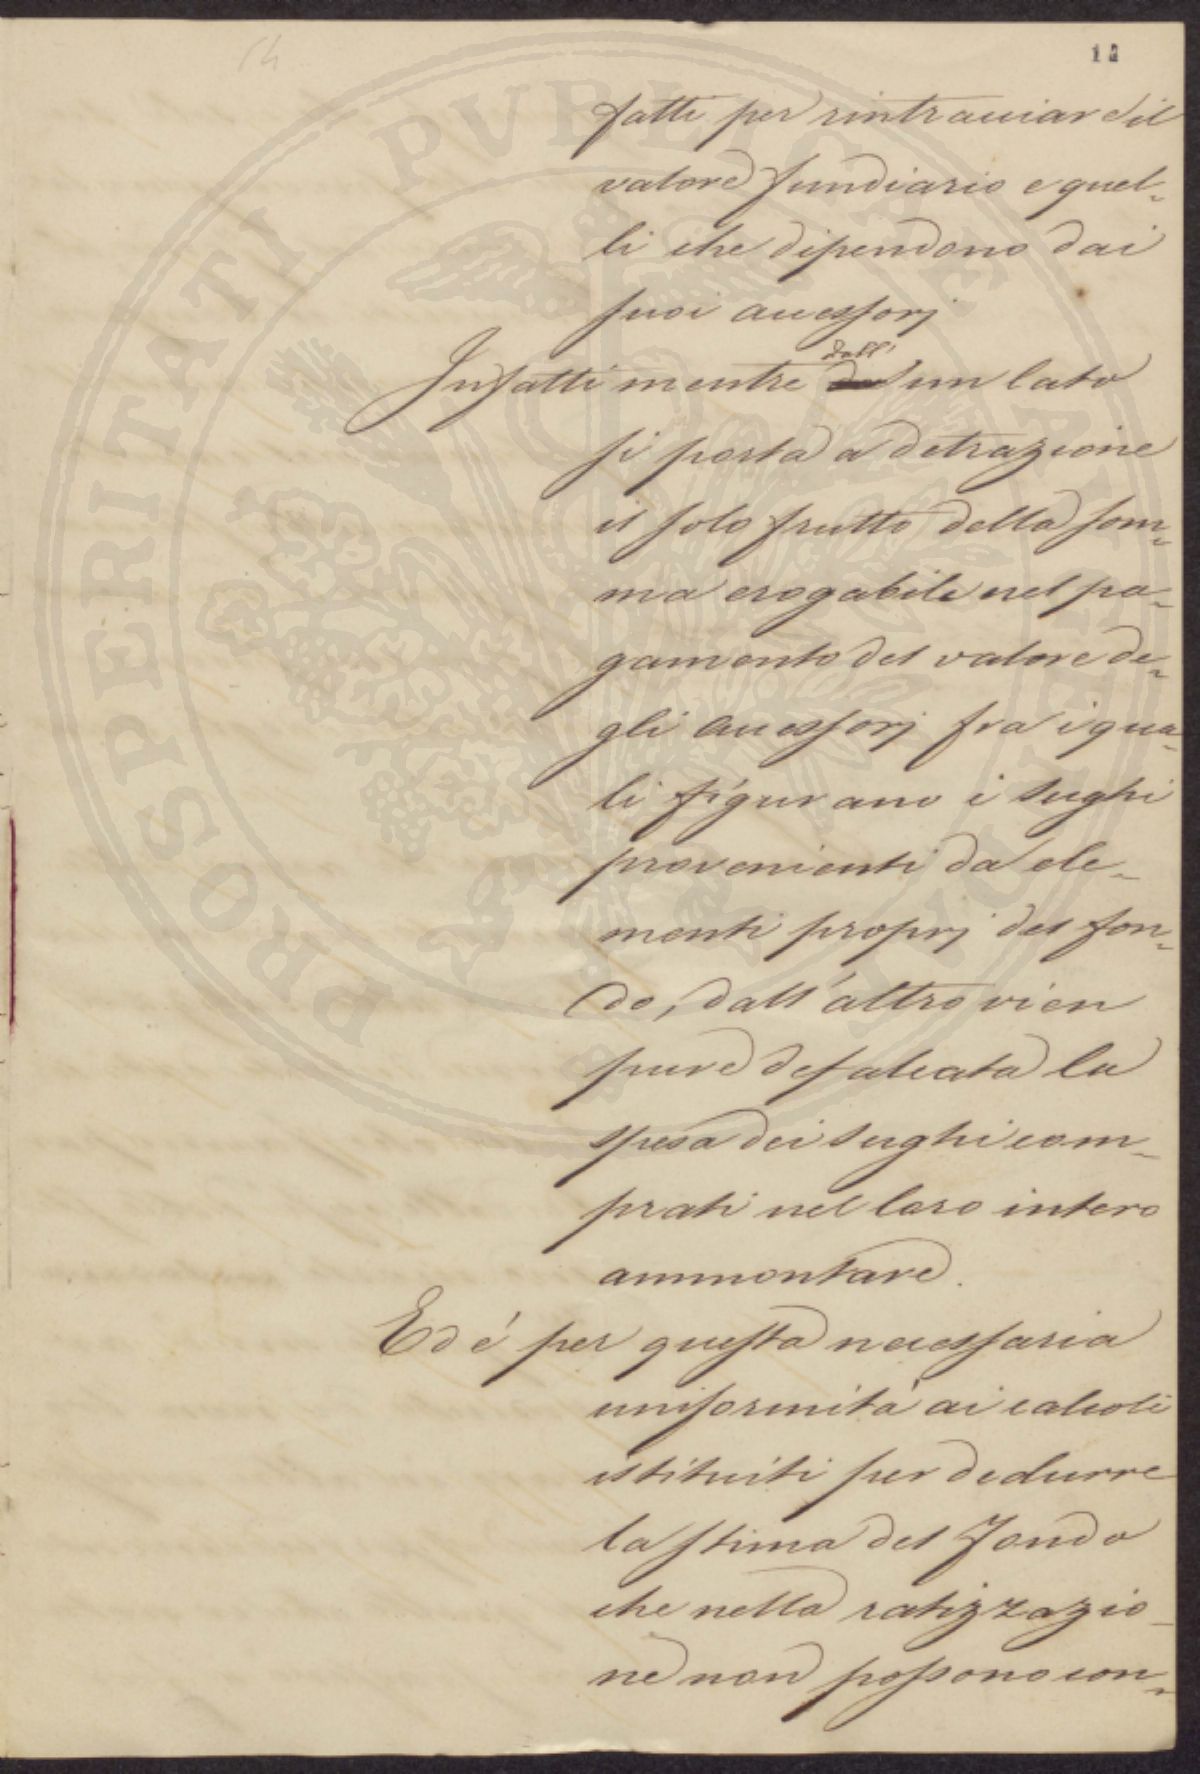 14
14
fatti per rintracciare il
valore fundiario e quel-
li che dipendono dai
suoi accessorj
Infatti mentre da dall' un lato
si porta a detrazione
il solo frutto della som-
ma erogabile nel pa-
gamento del valore de-
gli accessorj fra i qua-
li figurano i sughi
provenienti da ele-
menti proprj del fon-
do, dall'altro vien
pure defalcata la
spesa dei sughi com-
prati nel loro intero
ammontare.
Ed é per questa necessaria
uniformitá ai calcoli
istituiti per dedurre
la stima del Fondo
che nella ratizzazio-
ne non possono con-
PROSPERITATI PVBLICAE AVGENDAE